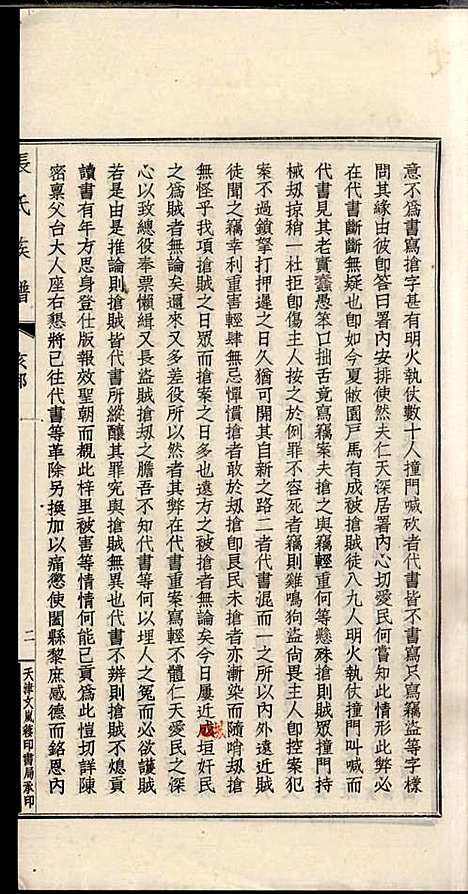 意不爲書寫搶字甚有明火執仗數十人撞門喊砍者代書皆不書寫只寫竊盜等字樣
問其緣由彼卽答曰署內安排使然夫仁天深居署內心切愛民何嘗知此情形此弊必
在代書斷斷無疑也卽如今夏敝園戸馬有成被搶賊徒八九人明火執仗撞門叫喊而
代書見其老實蠢愚笨口拙舌竟寫竊案夫搶之與竊輕重何等懸殊搶則賊眾撞門持
械刼掠稍一杜拒卽傷主人按之於例罪不容死者竊則雞鳴狗盜尙畏主人卽控案犯
案不過鎖拏打押遲之日久猶可開其自新之路二者代書混而一之所以內外遠近賊
徒聞之竊幸利重害輕肆無忌憚慣搶者敢於刼搶卽良民未搶者亦漸染而隨哨刼搶
無怪乎我項搶賊之日眾而搶案之日多也遠方之被搶者無論矣今日屢近城垣奸民
之爲賊者無論矣邇來又多差役所化者然究其弊在代書重案寫輕不體仁天愛民之深
心以致總役奉票懶緝又長盜賊搶刼之膽吾不知代書等何以埋人之冤而必欲護賊
若是由是推論則搶賊皆代書所縱釀其罪究與搶賊無異也代書不辨則搶賊不熄貢
讀書有年方思身登仕版報效聖朝而覩此梓里被害等情情何能已貢爲此愷切詳陳
密稟父台大人座右懇將已往代書等革除另換加以痛懲使闔縣黎庶感德而銘恩內
張氏族譜
亥部
二
天津文嵐簃印書局承印
城